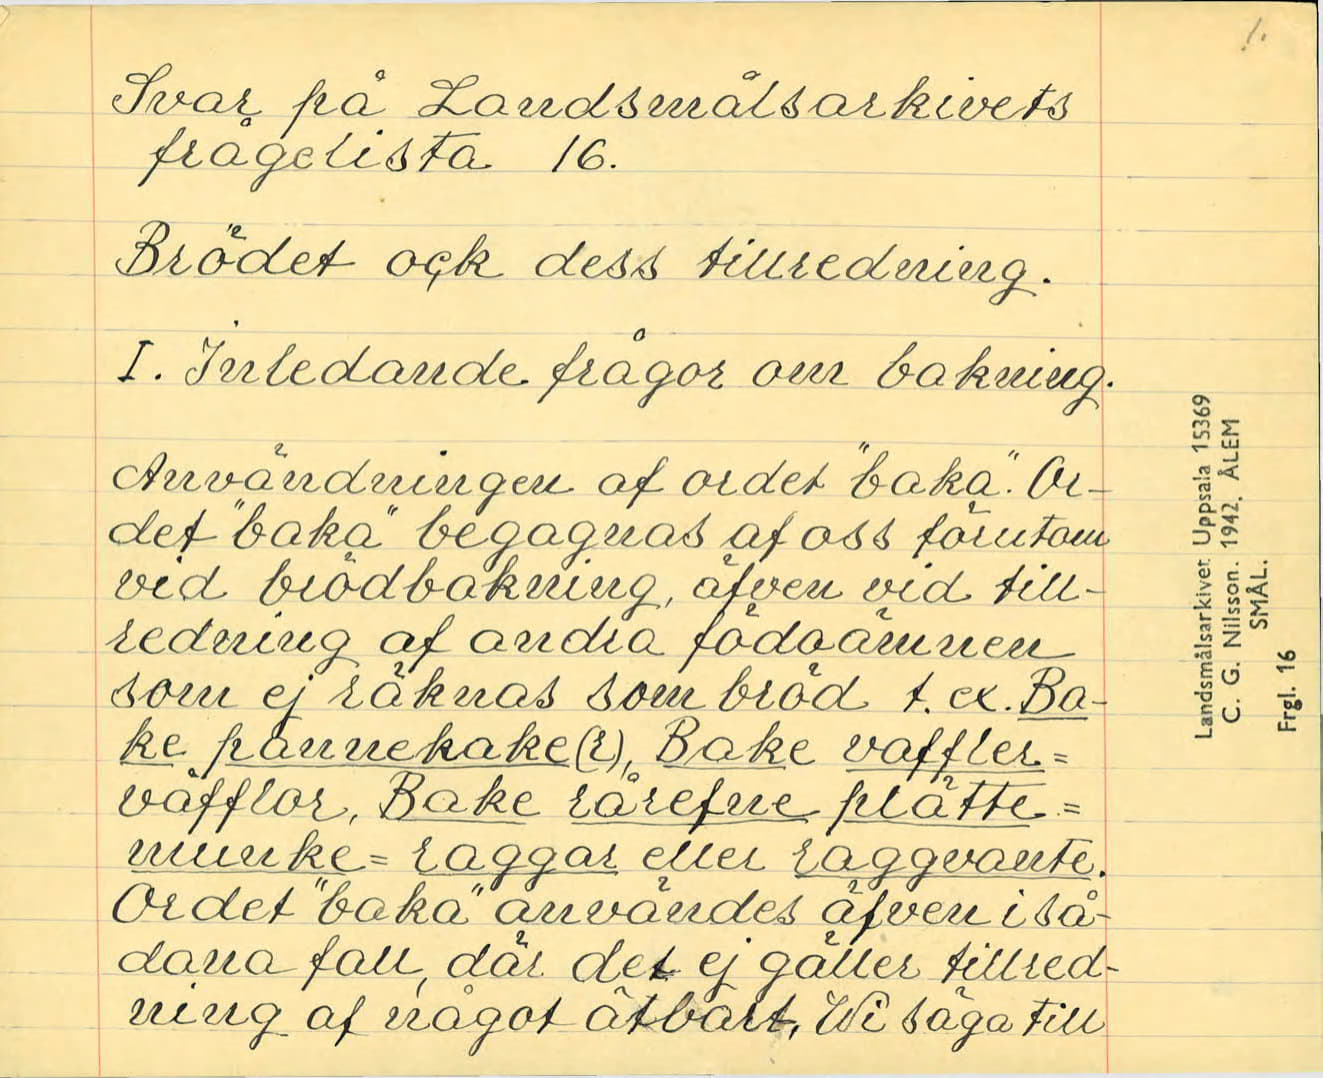 1.
Svar på Landsmålsarkivets
frågelista 16.
Brödet ock dess tillredning.
I. Inledande frågor om bakning.
Användningen af ordet "baka". Or-
det "baka" begagnas af oss förutom
vid brödbakning, äfven vid till-
redning af andra födoämnen
som ej räknas som bröd t. ex. Ba-
ke pannekake(r), Bake vaffler =
våfflor, Bake rårefne plätte =
munke = raggar eller raggvante.
Ordet "baka" användes äfven i så-
dana fall, där det ej gäller tillred-
ning af något ätbart, Wi säga till
Landsmålsarkivet Uppsala 15369
C. G. Nilsson. 1942. ÅLEM
SMÅL.
Frgl. 16